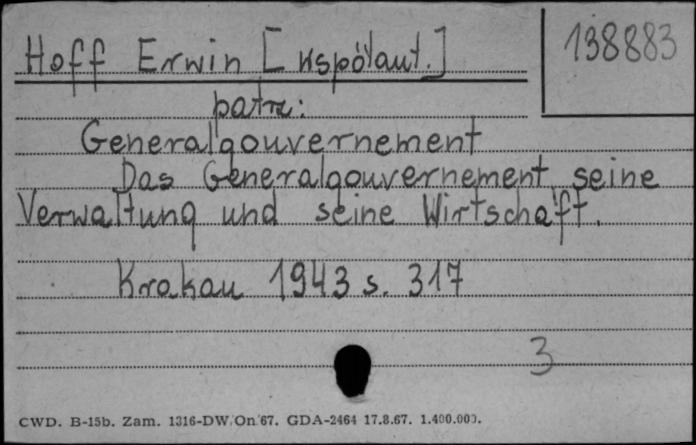 Hoff Erwin [współaut.]
138883
patrz:
Generalgouvernement
Das Generalgouvernement seine
Verwaltung und seine Wirtschaft.
Krakau 1943 s. 317
3
CWD. B-15b. Zam. 1316-DW/On/67. GDA-2464 17.8.67. 1.400.000.